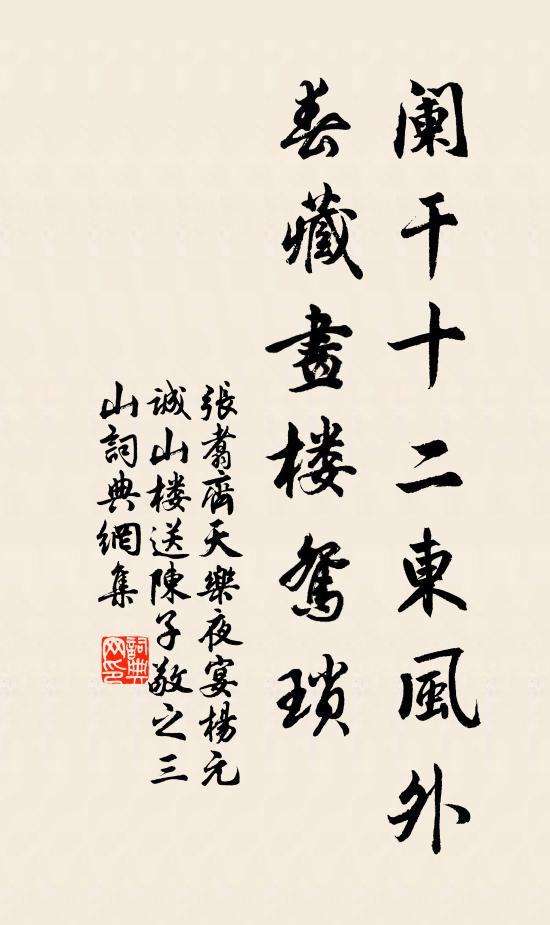 阑干十二東風外
春藏畫楼鴛瑣
張翥齊天樂夜宴楊元
诚山楼送陳子敬之三
山詞典網集
詞典网印